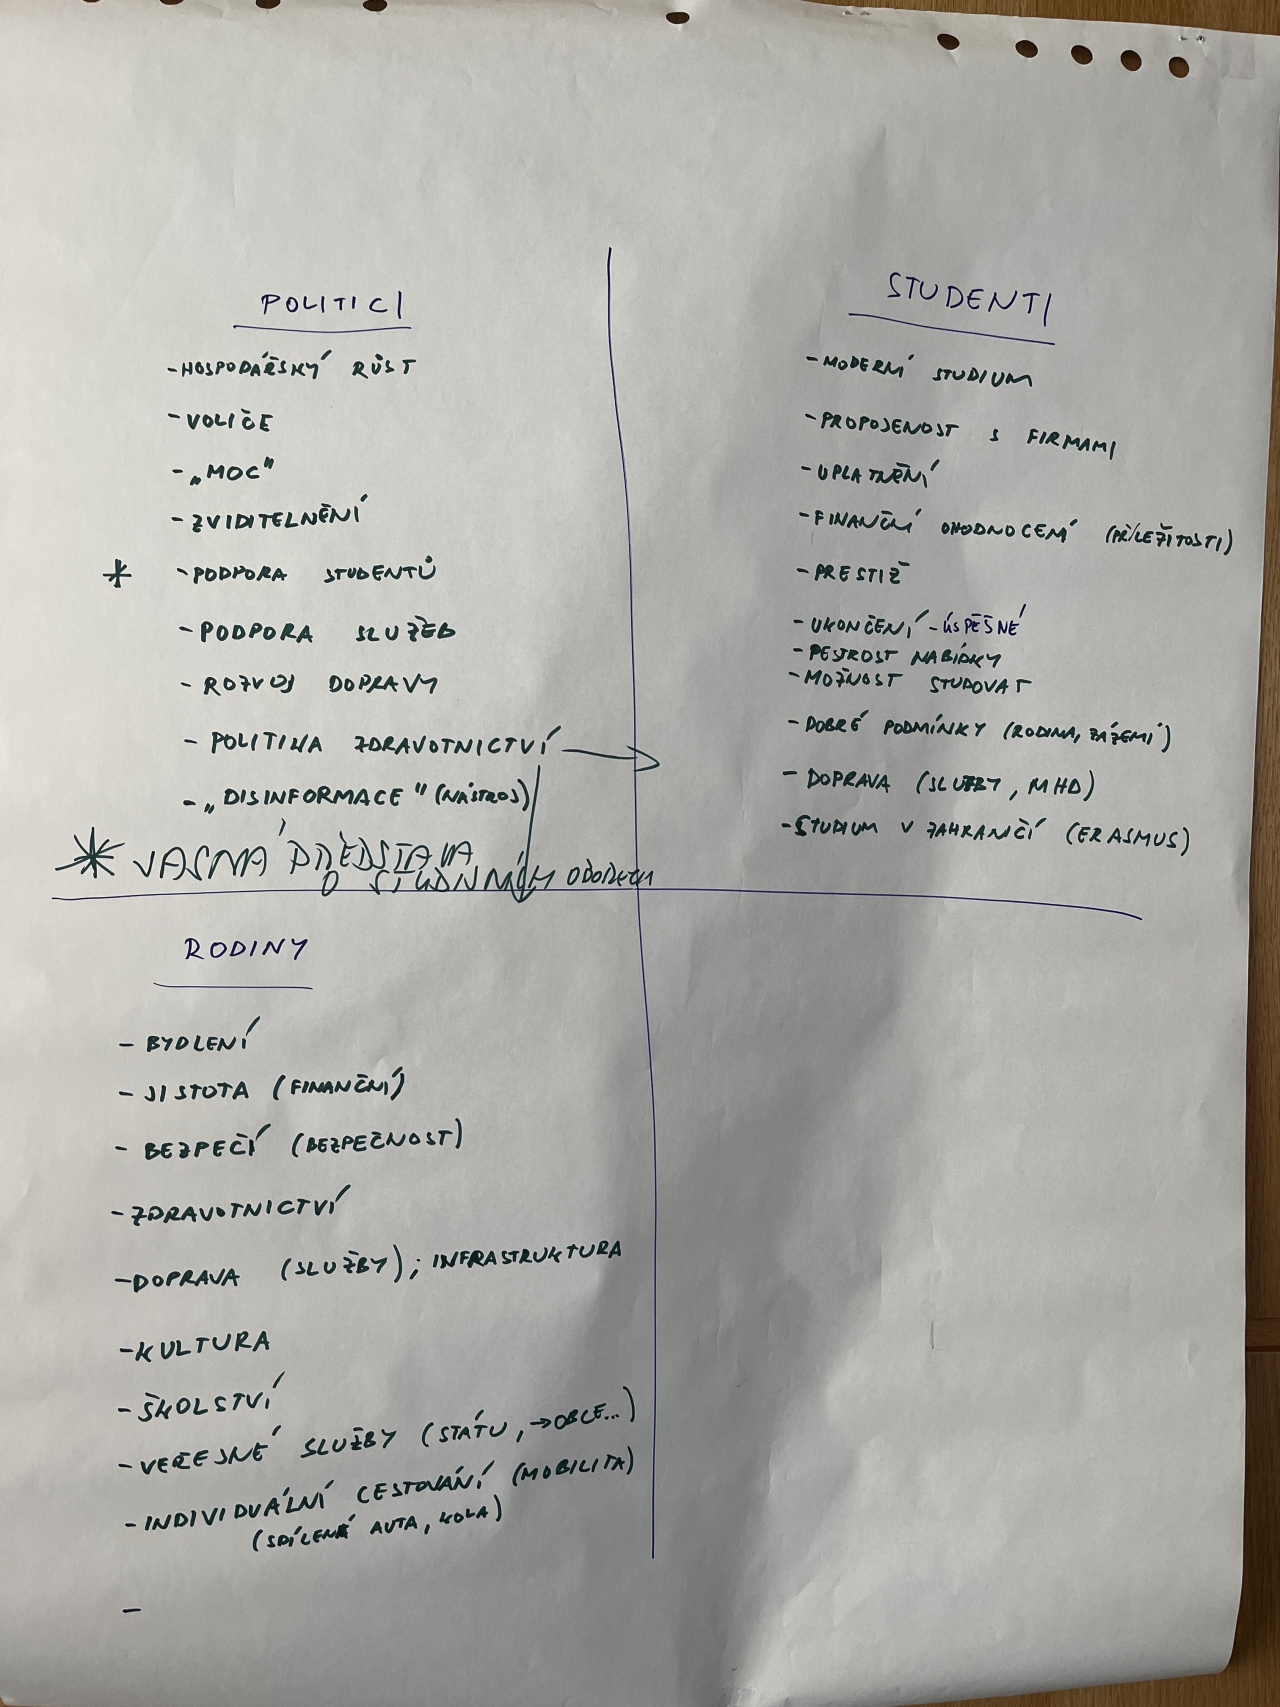 POLITICI
-HOSPODÁŘSKÝ RŮST
-VOLIČE
-„MOC"
-ZVIDITELNĚNÍ
* -PODPORA STUDENTŮ
-PODPORA SLUŽEB
- ROZVOJ DOPRAVY
- POLITIKA ZDRAVOTNICTVÍ
-„DISINFORMACE" (NÁSTROJ)
* JASNÁ PŘEDSTAVA
O STUDIJNÍCH OBORECH
STUDENTI
-MODERNÍ STUDIUM
-PROPOJENOST S FIRMAMI
-UPLATNĚNÍ
-FINANČNÍ OHODNOCENÍ (PŘÍLEŽITOSTI)
-PRESTIŽ
-UKONČENÍ -ÚSPĚŠNÉ
-PESTROST NABÍDKY
-MOŽNOST STUDOVAT
-DOBRÉ PODMÍNKY (RODINA, ZÁZEMÍ)
- DOPRAVA (SLUŽBY, MHD)
-STUDIUM V ZAHRANČÍ (ERASMUS)
RODINY
- BYDLENÍ
- JISTOTA (FINANČNÍ)
- BEZPEČÍ (BEZPEČNOST)
-ZDRAVOTNICTVÍ
-DOPRAVA (SLUŽBY); INFRASTRUKTURA
-KULTURA
-ŠKOLSTVÍ
-VEŘEJNÉ SLUŽBY (STÁTU, →OBCE...)
-INDIVIDUÁLNÍ CESTOVÁNÍ (MOBILITA)
(SDÍLENÁ AUTA, KOLA)
-